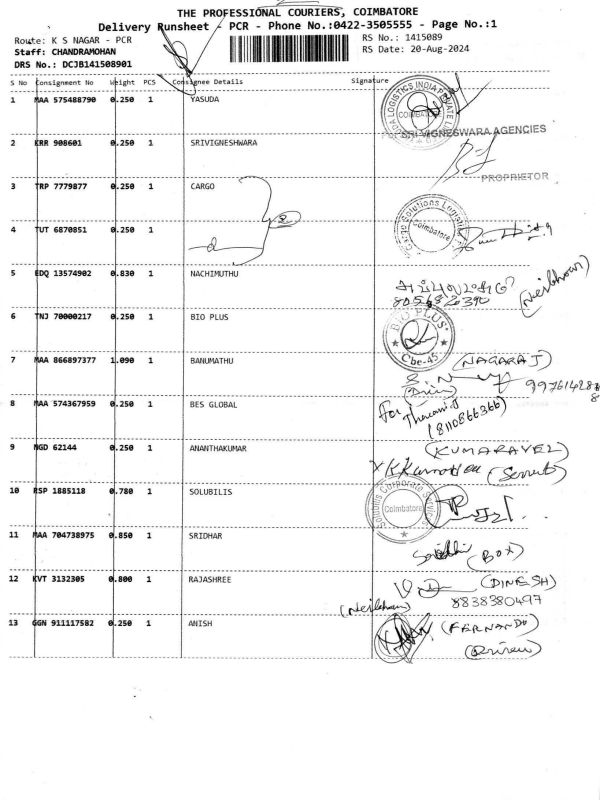 THE PROFESSIONAL COURIERS, COIMBATORE
Delivery Runsheet - PCR - Phone No.:0422-3505555 - Page No.:1
Route: K S NAGAR - PCR
RS No.: 1415089
Staff: CHANDRAMOHAN
RS Date: 20-Aug-2024
DRS No.: DCJB141508901
S No Consignment No Weight PCS Consignee Details Signature
1 MAA 575488790 0.250 1 YASUDA
COIMBATORE
SRI VIGNESWARA AGENCIES
2 KRR 908601 0.250 1 SRIVIGNESHWARA
PROPRIETOR
3 TRP 7779877 0.250 1 CARGO
2
Coimbatore
4 TUT 6870851 0.250 1
5 EDQ 13574902 0.830 1 NACHIMUTHU
6 TNJ 70000217 0.250 1 BIO PLUS
BIO PLUS
Cbe-45
7 MAA 866897377 1.090 1 BANUMATHU
(NAGARAJ)
8 MAA 574367959 0.250 1 BES GLOBAL
For
(8110866366)
9 NGD 62144 0.250 1 ANANTHAKUMAR
(KUMARAVEL)
10 RSP 1885118 0.780 1 SOLUBILIS
Solubilis Corporate Services
Coimbatore
11 MAA 704738975 0.850 1 SRIDHAR
(BOX)
12 KVT 3132305 0.800 1 RAJASHREE
(DINESH)
8838380497
13 GGN 911117582 0.250 1 ANISH
(FERNANDO)